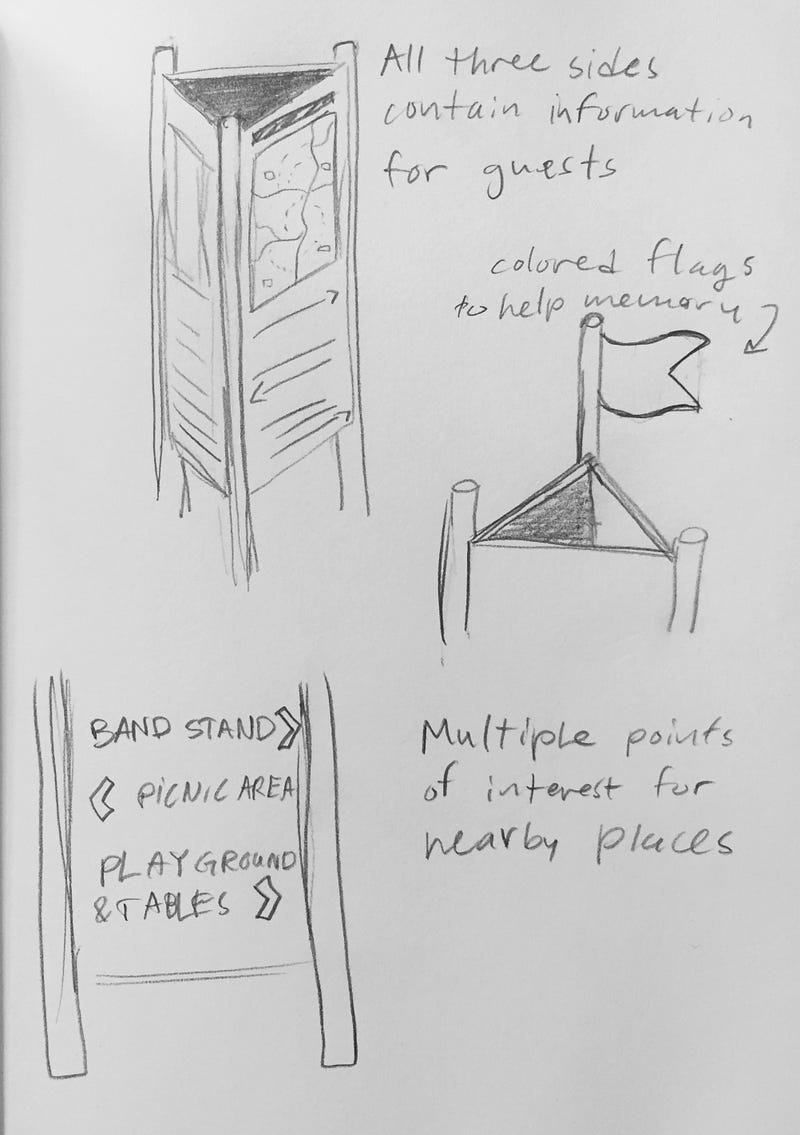 All three sides
contain information
for guests
colored flags
to help memory
BAND STAND
PICNIC AREA
PLAYGROUND
& TABLES
Multiple points
of interest for
nearby places